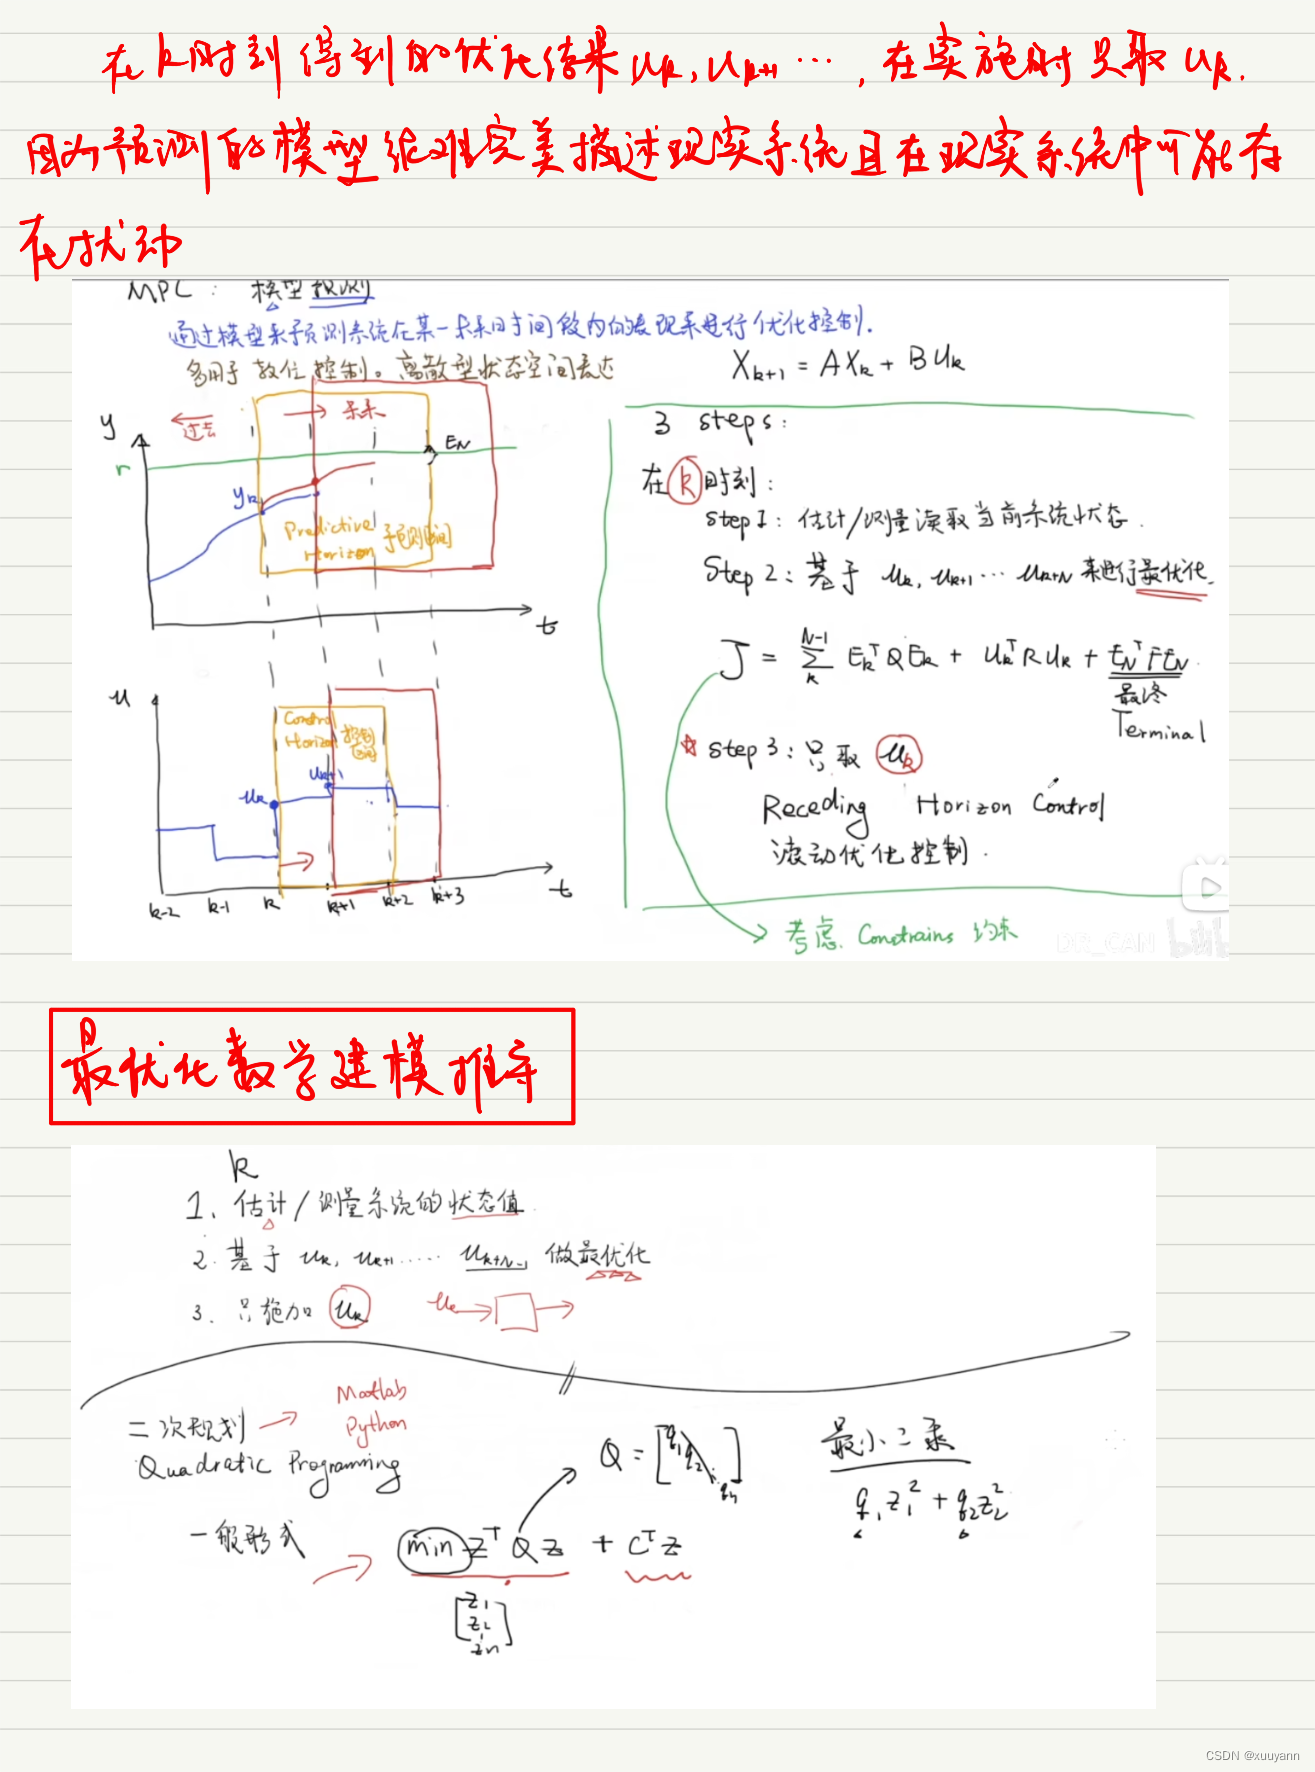 在k时刻得到的优化结果 uk, uk+1 ···, 在实施时只取 uk.
因为预测的模型很难完美描述现实系统且在现实系统中可能存
在扰动
MPC: 模型预测
通过模型来预测系统在某一未来时间段内的表现来进行优化控制.
多用于数位控制。离散型状态空间表达
Xk+1 = AXk + BUk
y
过去
未来
r
EN
yk
Predictive
Horizon 预测区间
t
u
Control
Horizon 控制
区间
uk
uk+1
k-2 k-1 k k+1 k+2 k+3
t
3 steps:
在k时刻:
step1: 估计/测量读取当前系统状态.
Step 2: 基于 uk, uk+1 ··· uk+N 来进行最优化.
J = Σ N-1 k Ek^T Q Ek + Uk^T R Uk + EN^T F EN
最终
Terminal
step 3: 只取 uk
Receding Horizon Control
滚动优化控制.
考虑 Constrains 约束
DR_CAN bilibili
最优化数学建模推导
k
1、估计/测量系统的状态值
2. 基于 uk, uk+1 ····· uk+N-1 做最优化
3. 只施加 uk
uk
二次规划
Matlab
Python
Quadratic Programming
一般形式
min Z^T Q Z + C^T Z
[z1
z2
zn]
Q = [q1 q2 ... qn]
最小二乘
q1z1² + q2z2²
CSDN @xuuyann